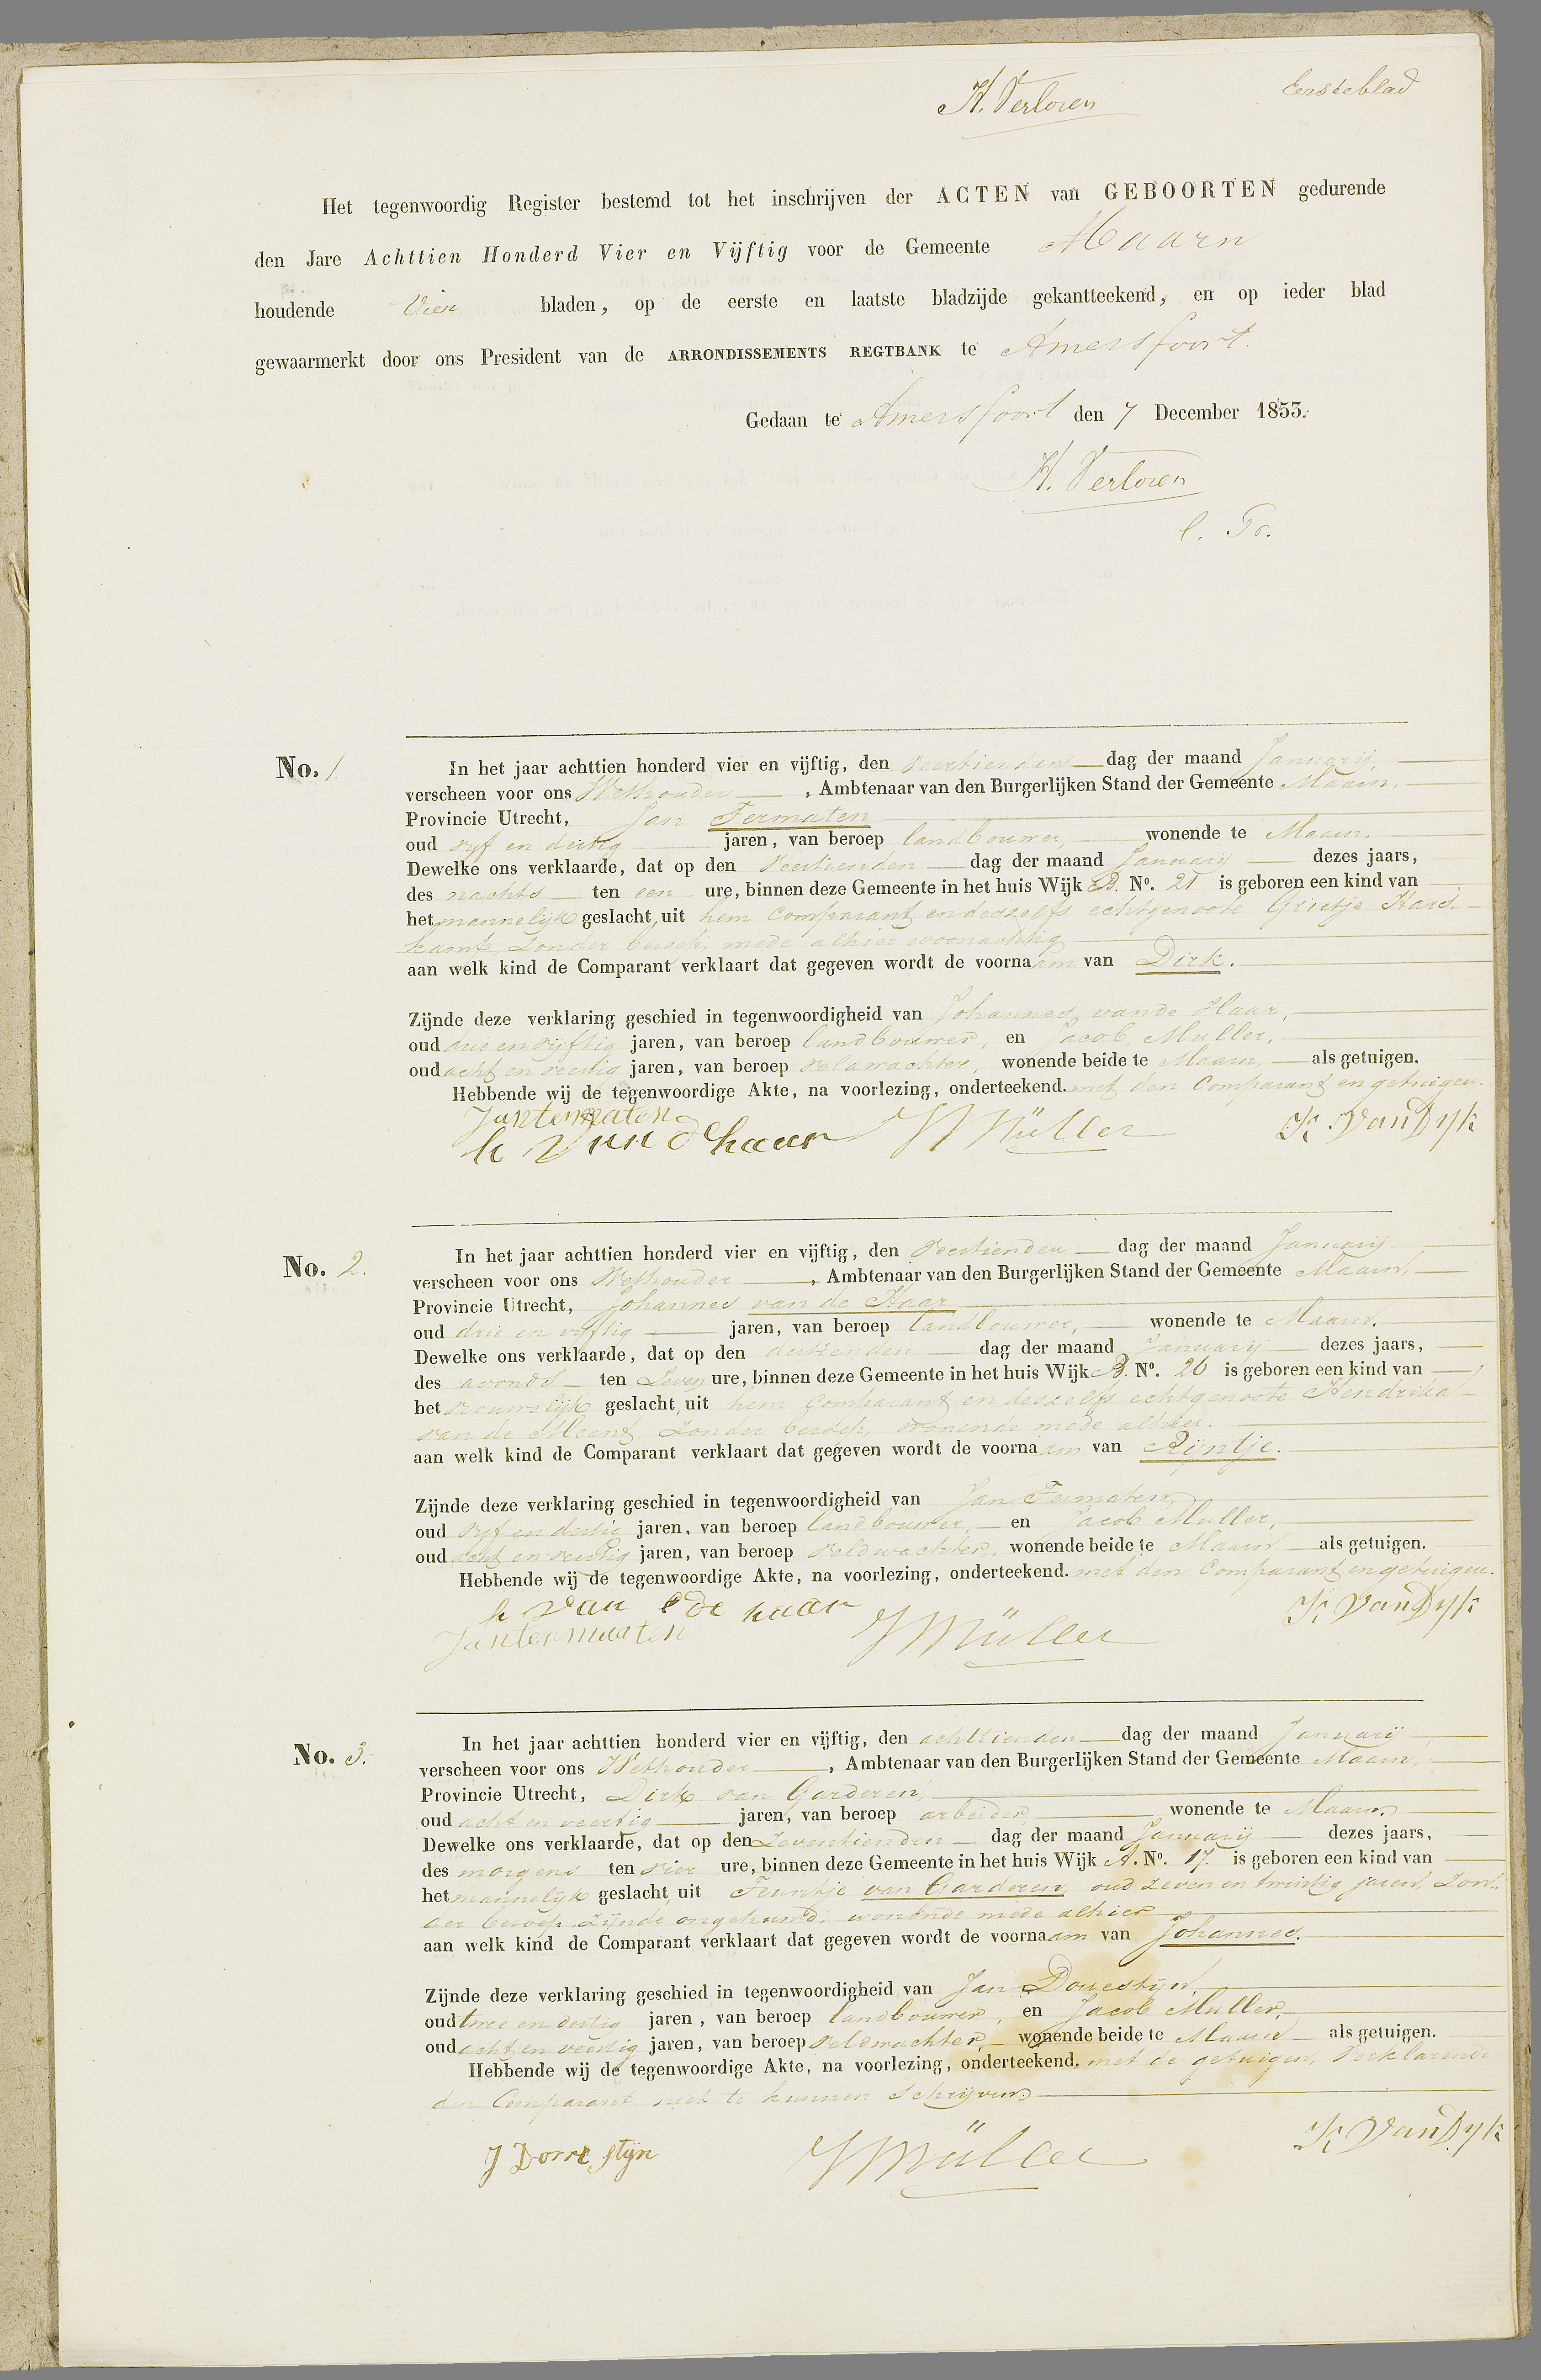 H. Verloren
Eersteblad
Het tegenwoordig Register bestemd tot het inschrijven der ACTEN van GEBOORTEN gedurende
den Jare Achttien Honderd Vier en Vijftig voor de Gemeente Maarn
houdende Vier bladen, op de eerste en laatste bladzijde gekantteekend, en op ieder blad
gewaarmerkt door ons President van de ARRONDISSEMENTS REGTBANK te Amersfoort.
Gedaan te Amersfoort den 7 December 1853.
H. Verloren
No. 1.
In het jaar achttien honderd vier en vijftig, den veertienden dag der maand Januarij,
verscheen voor ons Wethouder, Ambtenaar van den Burgerlijken Stand der Gemeente Maarn,
Provincie Utrecht, Jan Termaten
oud vyf en dertig jaren, van beroep landbouwer, wonende te Maarn.
Dewelke ons verklaarde, dat op den veertienden dag der maand Januarij dezes jaars,
des nachts ten een ure, binnen deze Gemeente in het huis Wijk B. No. 21 is geboren een kind van
het mannelijk geslacht, uit hem Comparant en deszelfs echtgenoote Grietje Hard-
kamp zonder beroep, mede alhier woonachtig
aan welk kind de Comparant verklaart dat gegeven wordt de voornaam van Dirk.
Zijnde deze verklaring geschied in tegenwoordigheid van Johannes van de Haar,
oud drie en vijftig jaren, van beroep landbouwer, en Jacob Muller,
oud acht en veertig jaren, van beroep veldwachter, wonende beide te Maarn, als getuigen.
Hebbende wij de tegenwoordige Akte, na voorlezing, onderteekend. met den Comparant en getuigen.
Jantermaten
h van dehaar JMüller K VanDyk
No. 2.
In het jaar achttien honderd vier en vijftig, den veertienden dag der maand Januarij
verscheen voor ons Wethouder, Ambtenaar van den Burgerlijken Stand der Gemeente Maarn,
Provincie Utrecht, Johannes van de Haar
oud drie en vyftig jaren, van beroep landbouwer, wonende te Maarn.
Dewelke ons verklaarde, dat op den dertienden dag der maand Januarij dezes jaars,
des avonds ten zeven ure, binnen deze Gemeente in het huis Wijk B. No. 20 is geboren een kind van
het vrouwelijk geslacht, uit hem Comparant en deszelfs echtgenoote Hendrika
van de Meent, zonder beroep, wonende mede alhier.
aan welk kind de Comparant verklaart dat gegeven wordt de voornaam van Rijntje.
Zijnde deze verklaring geschied in tegenwoordigheid van Jan Termaten,
oud vyf en dertig jaren, van beroep landbouwer, en Jacob Muller,
oud acht en veertig jaren, van beroep veldwachter, wonende beide te Maarn als getuigen.
Hebbende wij de tegenwoordige Akte, na voorlezing, onderteekend. met den Comparant en getuigen.
h van de haar K VanDyk
Jantermaaten JMüller
No. 3.
In het jaar achttien honderd vier en vijftig, den achttienden dag der maand Januarij
verscheen voor ons Wethouder, Ambtenaar van den Burgerlijken Stand der Gemeente Maarn,
Provincie Utrecht, Dirk van Garderen,
oud acht en veertig jaren, van beroep arbeider, wonende te Maarn.
Dewelke ons verklaarde, dat op den zeventienden dag der maand Januarij dezes jaars,
des morgens ten vier ure, binnen deze Gemeente in het huis Wijk A. No. 17. is geboren een kind van
het mannelijk geslacht, uit Teuntje van Garderen, oud zeven en twintig jaren, zon-
der beroep zijnde ongehuwd, wonende mede alhier
aan welk kind de Comparant verklaart dat gegeven wordt de voornaam van Johannes.
Zijnde deze verklaring geschied in tegenwoordigheid van Jan Dorrestijn,
oud twee en dertig jaren, van beroep landbouwer, en Jacob Muller,
oud acht en veertig jaren, van beroep veldwachter, wonende beide te Maarn als getuigen.
Hebbende wij de tegenwoordige Akte, na voorlezing, onderteekend. met de getuigen, Verklarende
den Comparant niet te kunnen schrijven.
J Dorrestijn JMüller K VanDyk